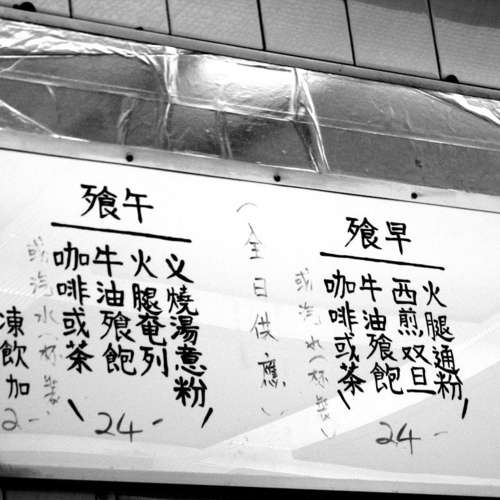 早飱
火腿通粉
西煎双旦
牛油飱飽
咖啡或茶
或汽水
24-
(全日供應)
午飱
义燒湯薏粉
火腿奄列
牛油飱飽
咖啡或茶
或汽水
24-
凍飲加
2-